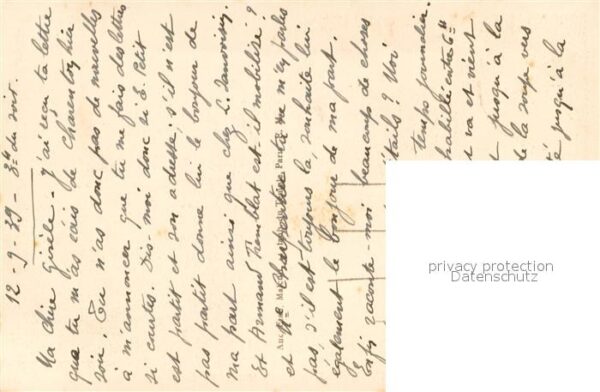 12-9-39 - 8h du soir.
Ma chère Gisèle - J'ai reçu ta lettre
que tu m'as écris de Charenton hier
soir. Tu n'as donc pas de nouvelles
à m'annoncer que tu me fais des lettres
si courtes. Dis-moi donc si E. Petit
est partit et son adresse, s'il n'est
pas partit donne lui le bonjour de
ma part ainsi que chez L.
Et Armand Remblat est-il mobilisé ?
et Mr Charpentier tu ne m'en parles
pas, s'il est toujours là, souhaite lui
également le bonjour de ma part.
Enfi raconte-moi beaucoup de choses
tails ? Moi
temps
habillé
va et vient
jusqu'à la
de la soupe vers
jusqu'à la
privacy protection
Datenschutz